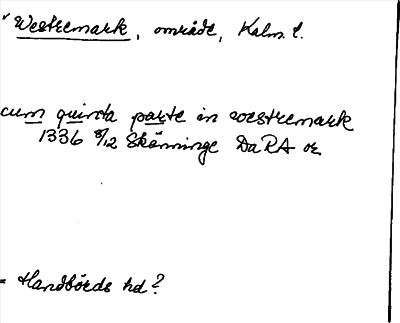 Westremark, område, Kalm. l.
cum quinta parte in westremark
1336 8/12 Skänninge DaRA or
= Handbörds hd?